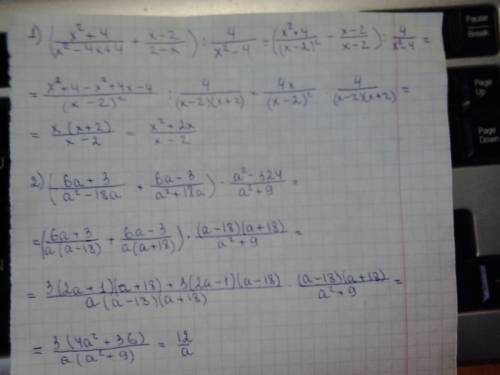 1) ((x²+4)/(x²-4x+4) + (x-2)/(2-x)) : 4/(x²-4) = ((x²+4)/(x-2)² - (x-2)/(x-2)) : 4/(x²-4) =
= (x²+4-x²+4x-4)/(x-2)² : 4/((x-2)(x+2)) = 4x/(x-2)² · 4/((x-2)(x+2)) =
= x(x+2)/(x-2) = (x²+2x)/(x-2)
2) ((6a+3)/(a²-18a) + (6a-3)/(a²+18a)) · (a²-324)/(a²+9) =
= ((6a+3)/(a(a-18)) + (6a-3)/(a(a+18))) · (a-18)(a+18)/(a²+9) =
= (3(2a+1)(a+18)+3(2a-1)(a-18))/(a(a-18)(a+18)) · (a-18)(a+18)/(a²+9) =
= 3(4a²+36)/(a(a²+9)) = 12/a
Pause
Break
Page
Up
Page
Dn